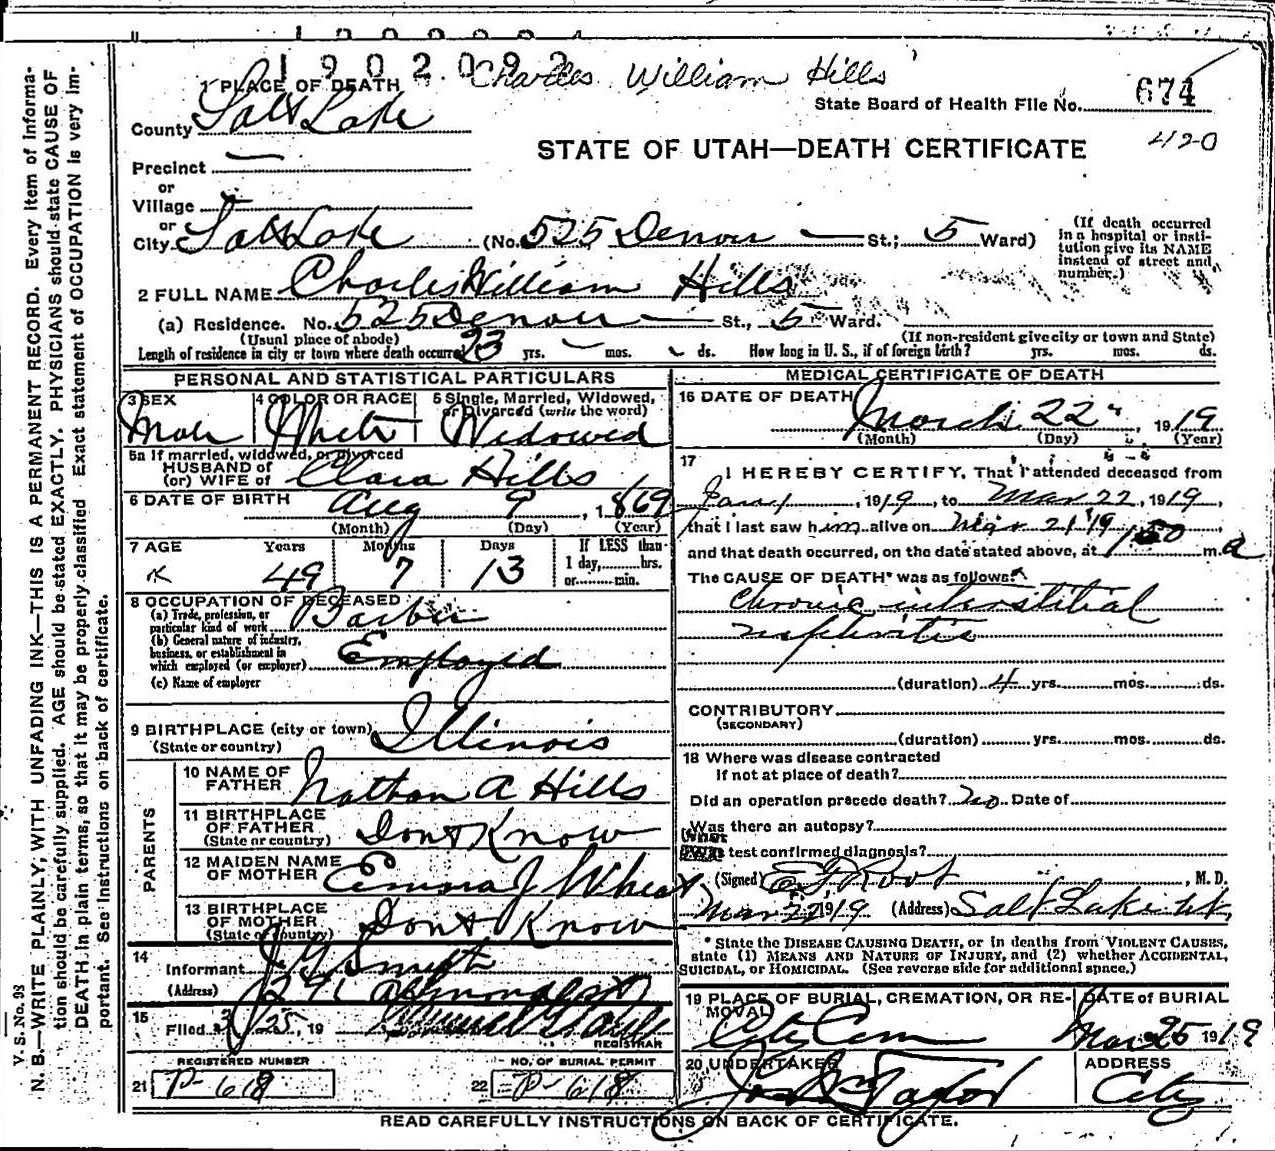 1902092
Charles William Hills
1 PLACE OF DEATH
State Board of Health File No. 674
County Salt Lake
420
STATE OF UTAH—DEATH CERTIFICATE
Precinct —
or
Village
or
City Salt Lake (No. 525 Denver — St.; 5 Ward)
(If death occurred in a hospital or institution give its NAME instead of street and number.)
2 FULL NAME Charles William Hills
(a) Residence. No. 525 Denver — St., 5 Ward.
(Usual place of abode) (If non-resident give city or town and State)
Length of residence in city or town where death occurred 23 yrs. — mos. ds. How long in U. S., if of foreign birth? yrs. mos. ds.
PERSONAL AND STATISTICAL PARTICULARS
3 SEX 4 COLOR OR RACE 5 Single, Married, Widowed, or Divorced (write the word)
Male White Widowed
5a If married, widowed, or divorced
HUSBAND of
(or) WIFE of Clara Hills
6 DATE OF BIRTH Aug 9, 1869
(Month) (Day) (Year)
7 AGE Years Months Days If LESS than
49 7 13 1 day, hrs.
or min.
8 OCCUPATION OF DECEASED
(a) Trade, profession, or
particular kind of work Barber
(b) General nature of industry,
business, or establishment in
which employed (or employer) Employed
(c) Name of employer
9 BIRTHPLACE (city or town)
(State or country) Illinois
PARENTS
10 NAME OF FATHER Nathan A Hills
11 BIRTHPLACE OF FATHER
(State or country) Dont Know
12 MAIDEN NAME OF MOTHER Emma J Wheat
13 BIRTHPLACE OF MOTHER
(State or country) Dont Know
14
Informant J G Smyth
(Address)
15 Filed 25, 19
REGISTRAR
REGISTERED NUMBER NO. OF BURIAL PERMIT
21 P-618 22 P-618
MEDICAL CERTIFICATE OF DEATH
16 DATE OF DEATH
March 22, 1919
(Month) (Day) (Year)
17
I HEREBY CERTIFY, That I attended deceased from
Jany 1, 1919, to Mar 22, 1919,
that I last saw him alive on Mar 21 '19,
and that death occurred, on the date stated above, at 1:50 m. a
The CAUSE OF DEATH* was as follows:
Chronic interstitial
nephritis
(duration) 4 yrs. mos. ds.
CONTRIBUTORY
(SECONDARY)
(duration) yrs. mos. ds.
18 Where was disease contracted
If not at place of death?
Did an operation precede death? No Date of
Was there an autopsy?
What test confirmed diagnosis?
(Signed) E F Root, M. D.
Mar 22 1919 (Address) Salt Lake Ut.
* State the DISEASE CAUSING DEATH, or in deaths from VIOLENT CAUSES,
state (1) MEANS AND NATURE OF INJURY, and (2) whether ACCIDENTAL,
SUICIDAL, or HOMICIDAL. (See reverse side for additional space.)
19 PLACE OF BURIAL, CREMATION, OR REMOVAL DATE of BURIAL
City Cem Mar 25 1919
20 UNDERTAKER ADDRESS
Jos Wm Taylor City
READ CAREFULLY INSTRUCTIONS ON BACK OF CERTIFICATE.
V S. No. 98
N. B.—WRITE PLAINLY, WITH UNFADING INK—THIS IS A PERMANENT RECORD. Every item of informa-
tion should be carefully supplied. AGE should be stated EXACTLY. PHYSICIANS should state CAUSE OF
DEATH in plain terms, so that it may be properly classified Exact statement of OCCUPATION is very im-
portant. See instructions on back of certificate.